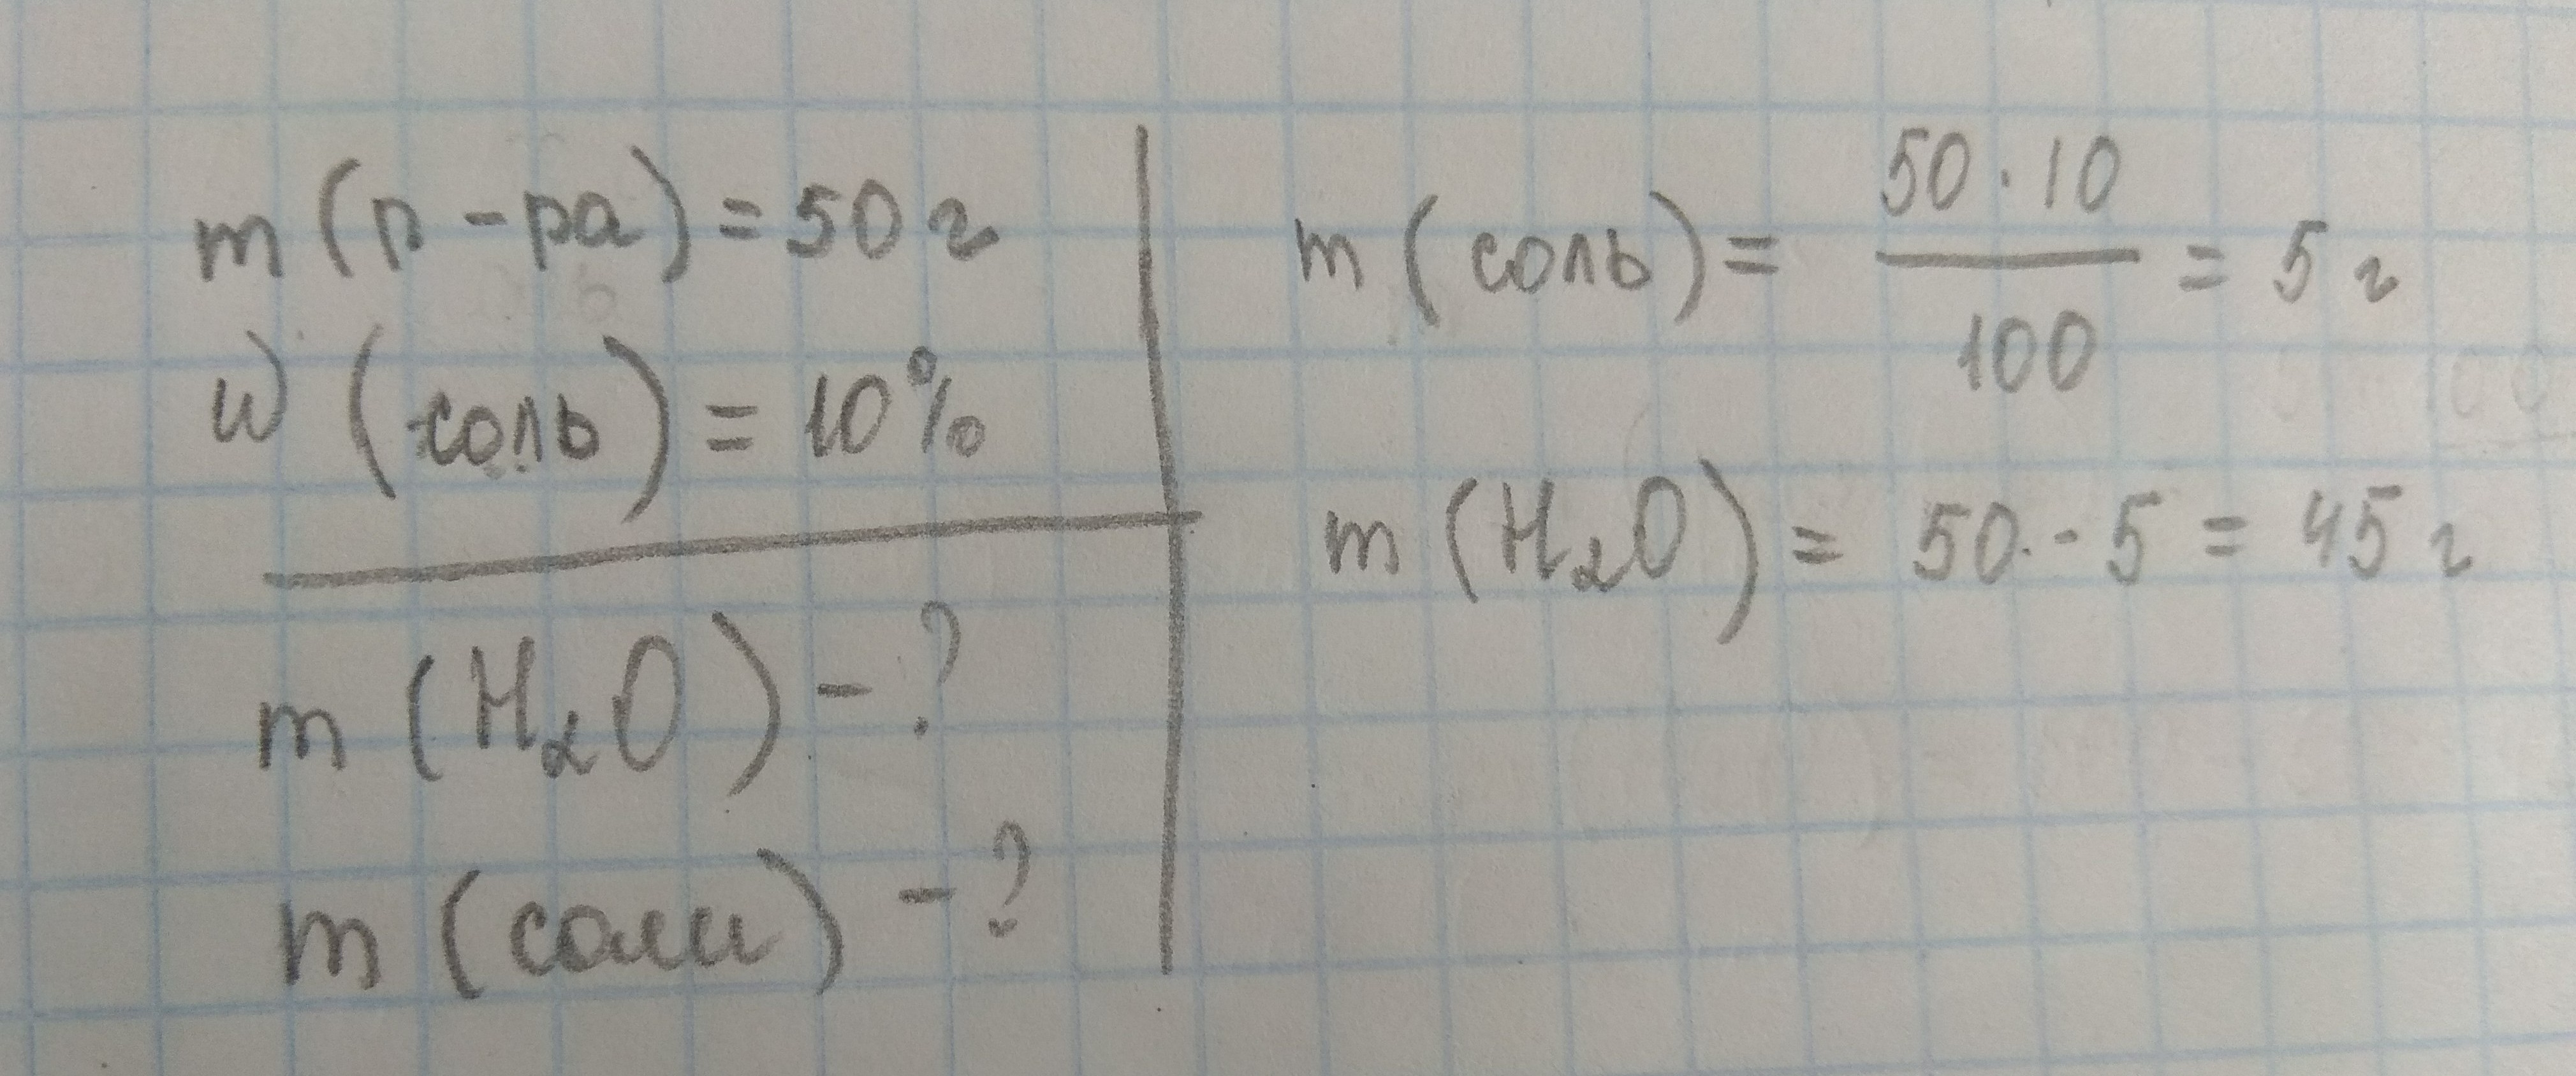 m (р-ра) = 50 г
ω (соль) = 10%
m (H₂O) - ?
m (соли) - ?
m (соль) = 50 · 10 / 100 = 5 г
m (H₂O) = 50 - 5 = 45 г